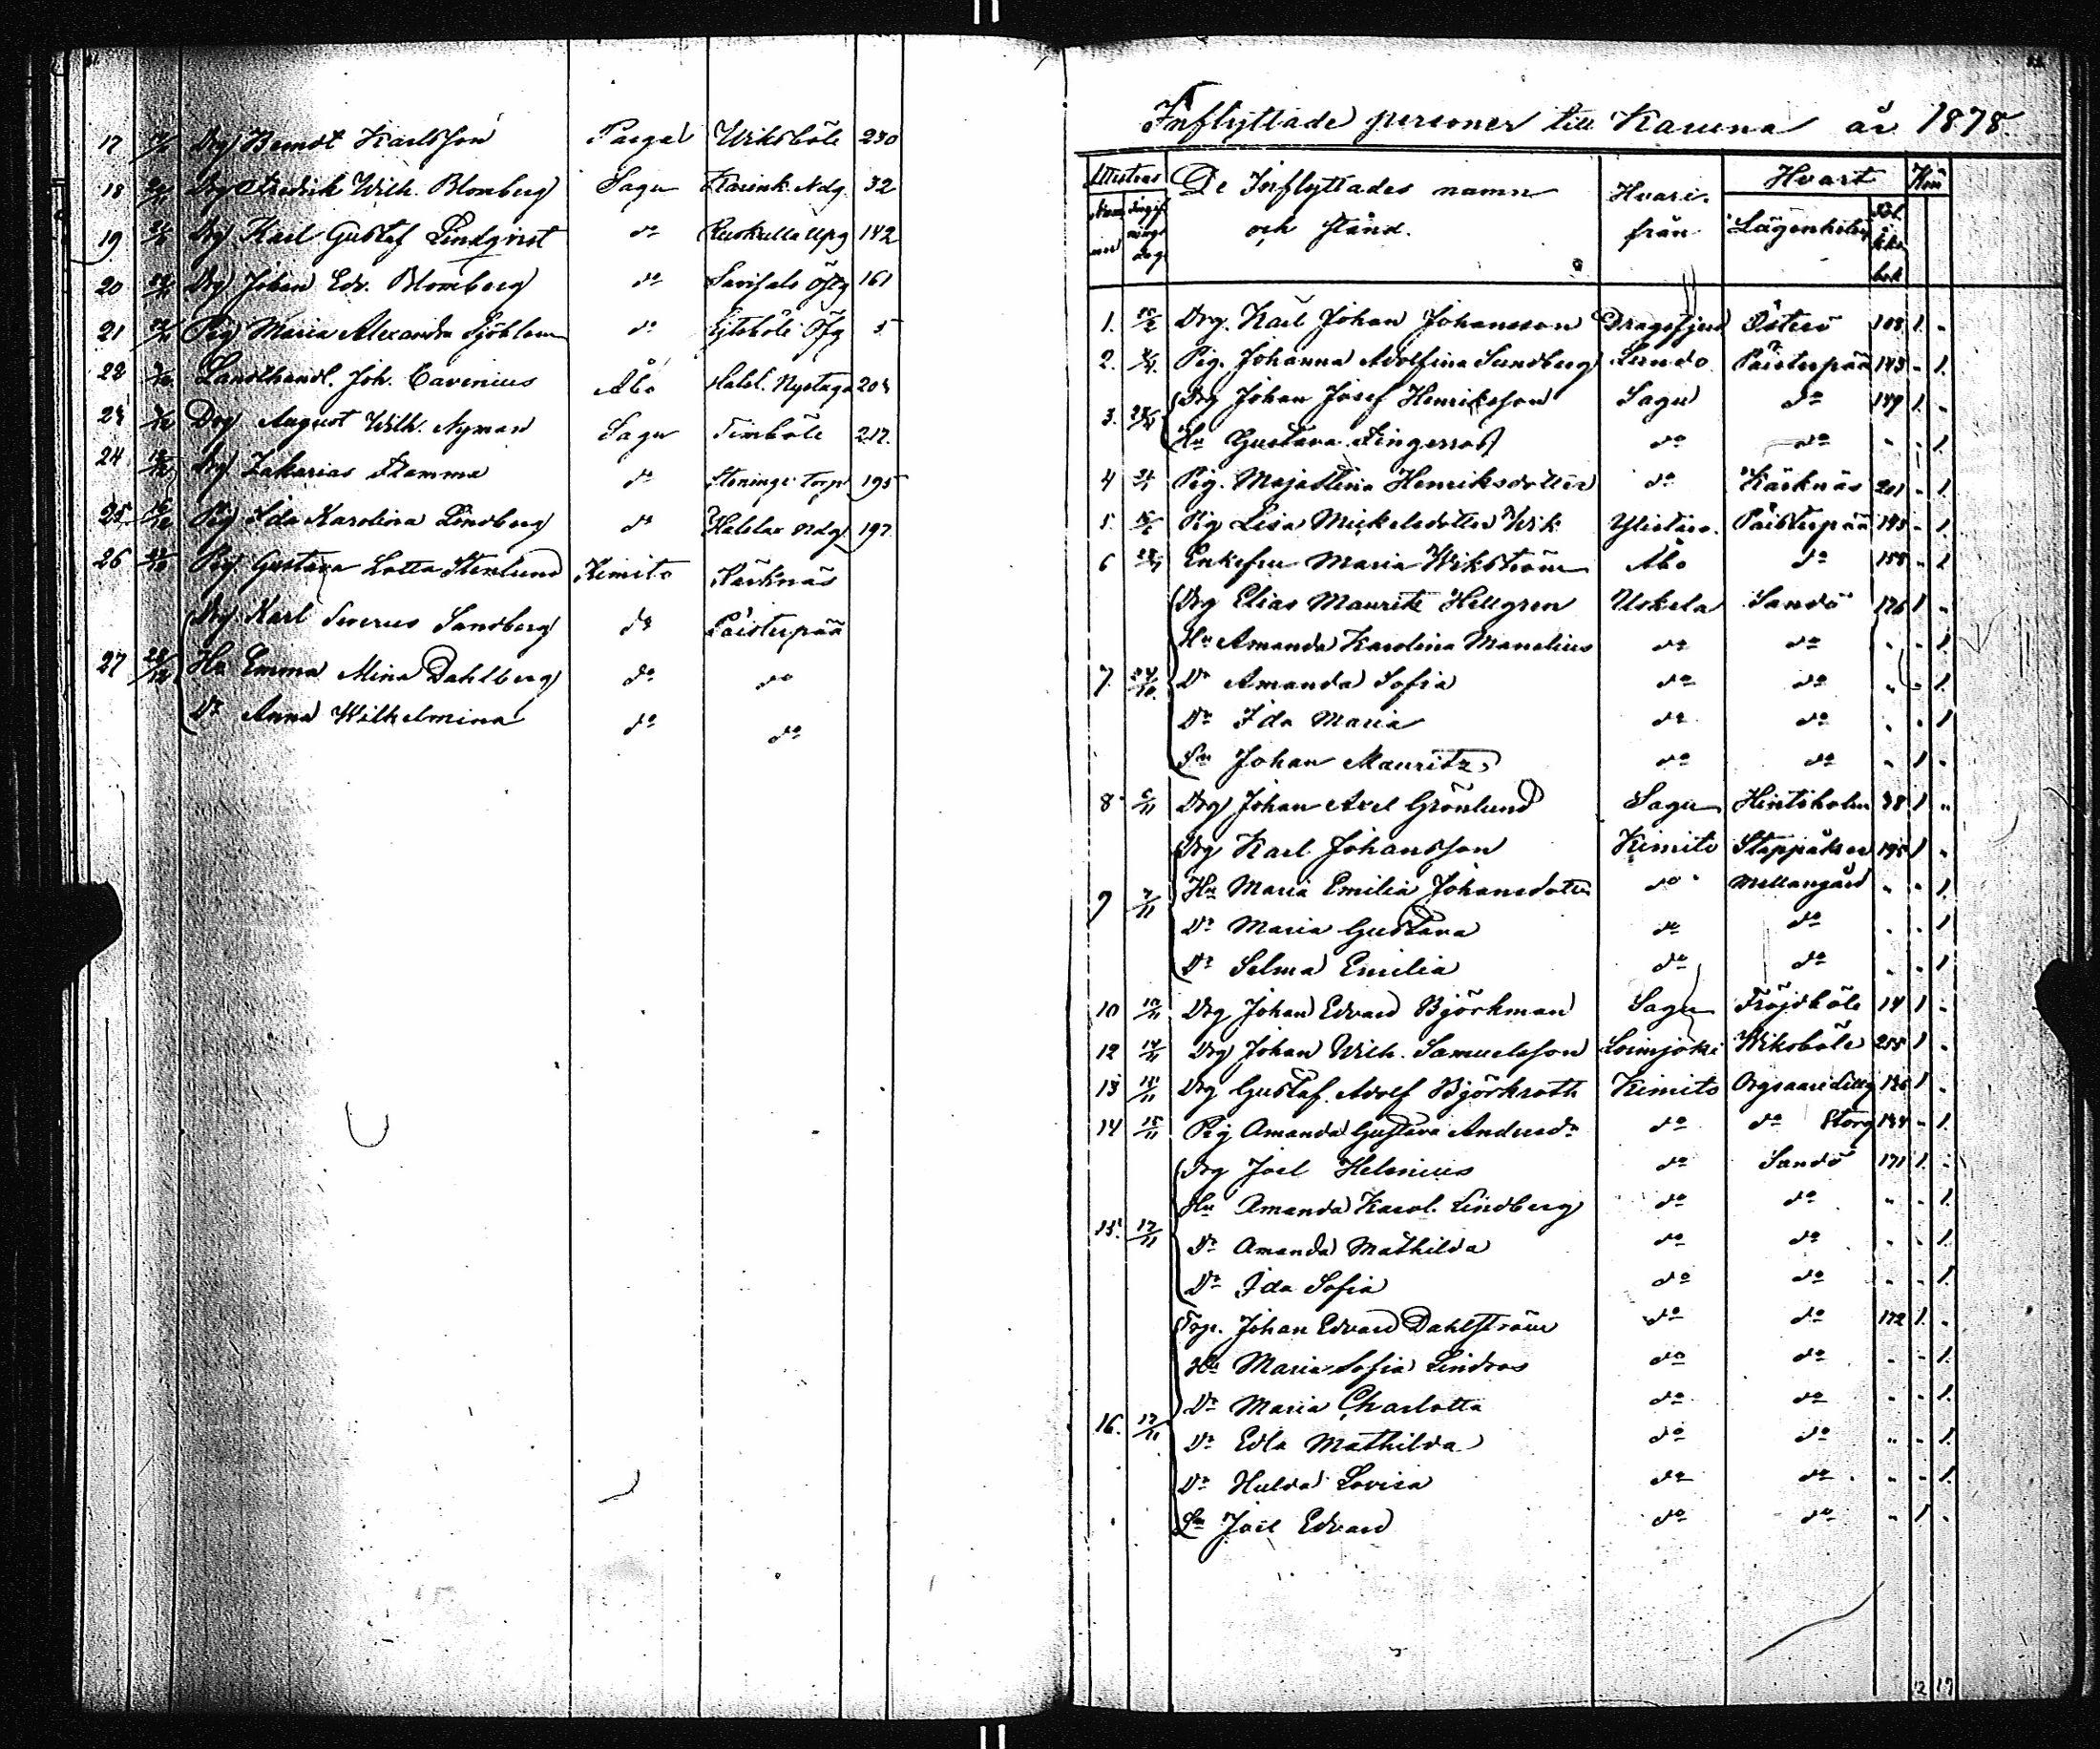 17 Drg Berndt Karlsson Pargas Wiksböle 230
18 Drg Fredrik Wilh. Blomberg Sagu Karink. Ndg. 32
19 Drg Karl Gustaf Lindqvist do Ruokulla Upg 142
20 Drg Johan Edv. Blomberg do Öfvg 161
21 Pig Maria Alexandra Sjöblom do Öfg 5
22 Landthandl. Joh. Cavenius Åbo Nystuga 204
23 Drg August Wilh. Nyman Sagu Timböle 217.
24 Drg Zakarias Stamma do Steninge Torp 195
25 Pig Ida Karolina Lindberg do Ndg 197
26 Pig. Gustava Lotta Stenlund Kimito Kärknäs
Drg Karl Severus Sandberg do Päisterpää
27 28/12 Hu Emma Mina Dahlberg do do
Dr Anna Wilhelmina do do
Inflyttade personer till Karuna år 1878
Attestens De Inflyttades namn Hvari- Hvart Kön
och stånd. från Lägenheten
bok
1. Drg. Karl Johan Johansson Dragsfjerd Österö 108 1. "
2. Pig. Johanna Adolfina Sundberg Lundo Päisterpää 143 " 1.
3. Drg Johan Josef Henriksson Sagu do 149 1. "
Hu Gustava Fingerroos do do " " 1
4 Pig. Maja Stina Henriksdotter do Kärknäs 201 " 1.
5. Pig Lisa Mickelsdotter Wik Ylistaro. Päisterpää 145 " 1.
6 Enkefru Maria Wikström Åbo do 158 " 1
Drg Elias Mauritz Hellgren Uskela Sandö 176 1 "
Hu Amanda Karolina Manelius do do " " 1.
7. Dr Amanda Sofia do do " " 1.
Dr Ida Maria do do " " 1
Sn Johan Mauritz do do " 1 "
8 6/11 Drg Johan Axel Grönlund Sagu Hintsholm 38 1 "
Drg Karl Johansson Kimito Stappåker 195 1 "
9 7/11 Hu Maria Emilia Johansdotter do Mellangård " " 1.
Dr Maria Gustava do do " " 1
Dr Selma Emilia do do " " 1
10 Drg Johan Edvard Björkman Sagu Fröjdböle 14 1 "
12 14/11 Drg Johan Wilh. Samuelsson Loimjoki Wiksböle 255 1 "
13 Drg Gustaf Adolf Björkroth Kimito Orgsaari Lillg 136 1 "
14 15/11 Pig Amanda Gustava Andersdr do do Storg 134 " 1.
Drg Joel Helenius do Sandö 171 1. "
Hu Amanda Karol. Lindberg do do " " 1.
15. 17/11 Dr Amanda Mathilda do do " " 1.
Dr Ida Sofia do do " " 1.
Torp. Johan Edvard Dahlström do do 172 1. "
Hu Maria Sofia Lindroos do do " " 1.
Dr Maria Charlotta do do " " 1.
16. 17/11 Dr Edla Mathilda do do " " 1.
Dr Hulda Lovisa do do " " 1.
Sn Joel Edvard do do " 1 "
12 19